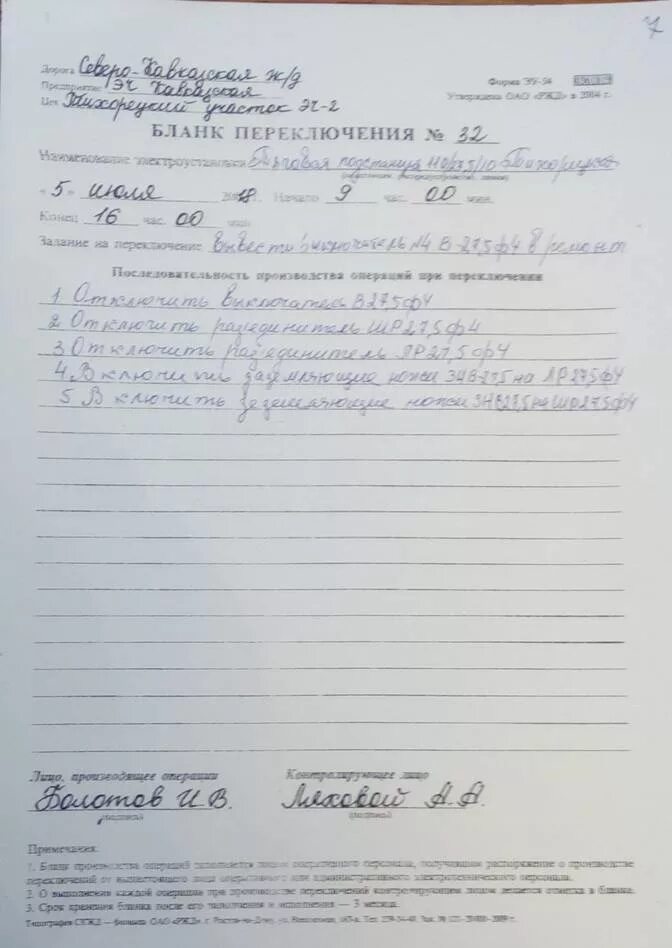 7
Дорога Северо-Кавказская ж/д
Форма ЭУ-54
Предприятие ЭЧ Кавказская
Утверждена ОАО «РЖД» в 2004 г.
Цех Тихорецкий участок ЭЧ-2
БЛАНК ПЕРЕКЛЮЧЕНИЯ № 32
Наименование электроустановки Тяговая подстанция 110/27,5/10 Тихорецкая
« 5 » июля 2018 г. Начало 9 час. 00 мин.
Конец 16 час. 00 мин.
Задание на переключение вывести выключатель №4 В-27,5ф4 в ремонт
Последовательность производства операций при переключении
1 Отключить выключатель В27,5ф4
2 Отключить разъединитель ШР27,5ф4
3 Отключить разъединитель ЛР27,5ф4
4 Включить заземляющие ножи ЗНВ-27,5 на ЛР27,5ф4
5 Включить заземляющие ножи 27,5 на ШР27,5ф4
Лицо, производящее операции
Контролирующее лицо
Болотов И.В.
Ляховой А.А.
(подпись)
(подпись)
Примечания:
1. Бланк производства операций заполняется лицом оперативного персонала, получившим распоряжение о производстве
переключений от вышестоящего лица оперативного или административного электротехнического персонала.
2. О выполнении каждой операции при производстве переключений контролирующим лицом делается отметка в бланке.
3. Срок хранения бланка после его заполнения и исполнения — 3 месяца.
Типография СКЖД — филиала ОАО «РЖД», г. Ростов-на-Дону, ул.